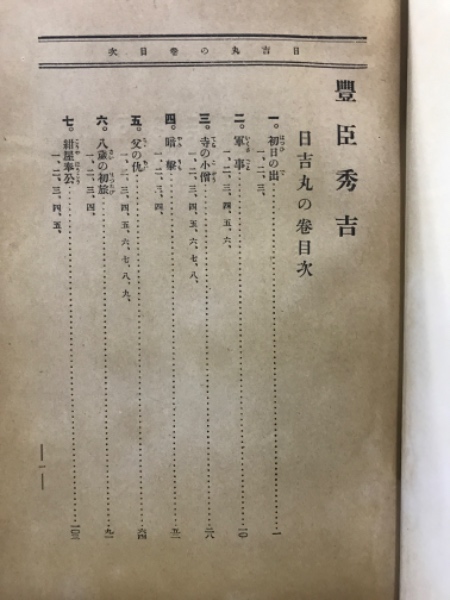 日吉丸の卷目次
豐臣秀吉
日吉丸の卷目次
一。初日の出……一
一、二、三、
二。軍事……一〇
一、二、三、四、五、六、
三。寺の小僧……二八
一、二、三、四、五、六、七、八、
四。暗撃……五二
一、二、三、四、
五。父の仇……六四
一、二、三、四、五、六、七、八、九、
六。八歳の初旅……九一
一、二、三、四、
七。紺屋奉公……一〇三
一、二、三、四、五、
― 一 ―